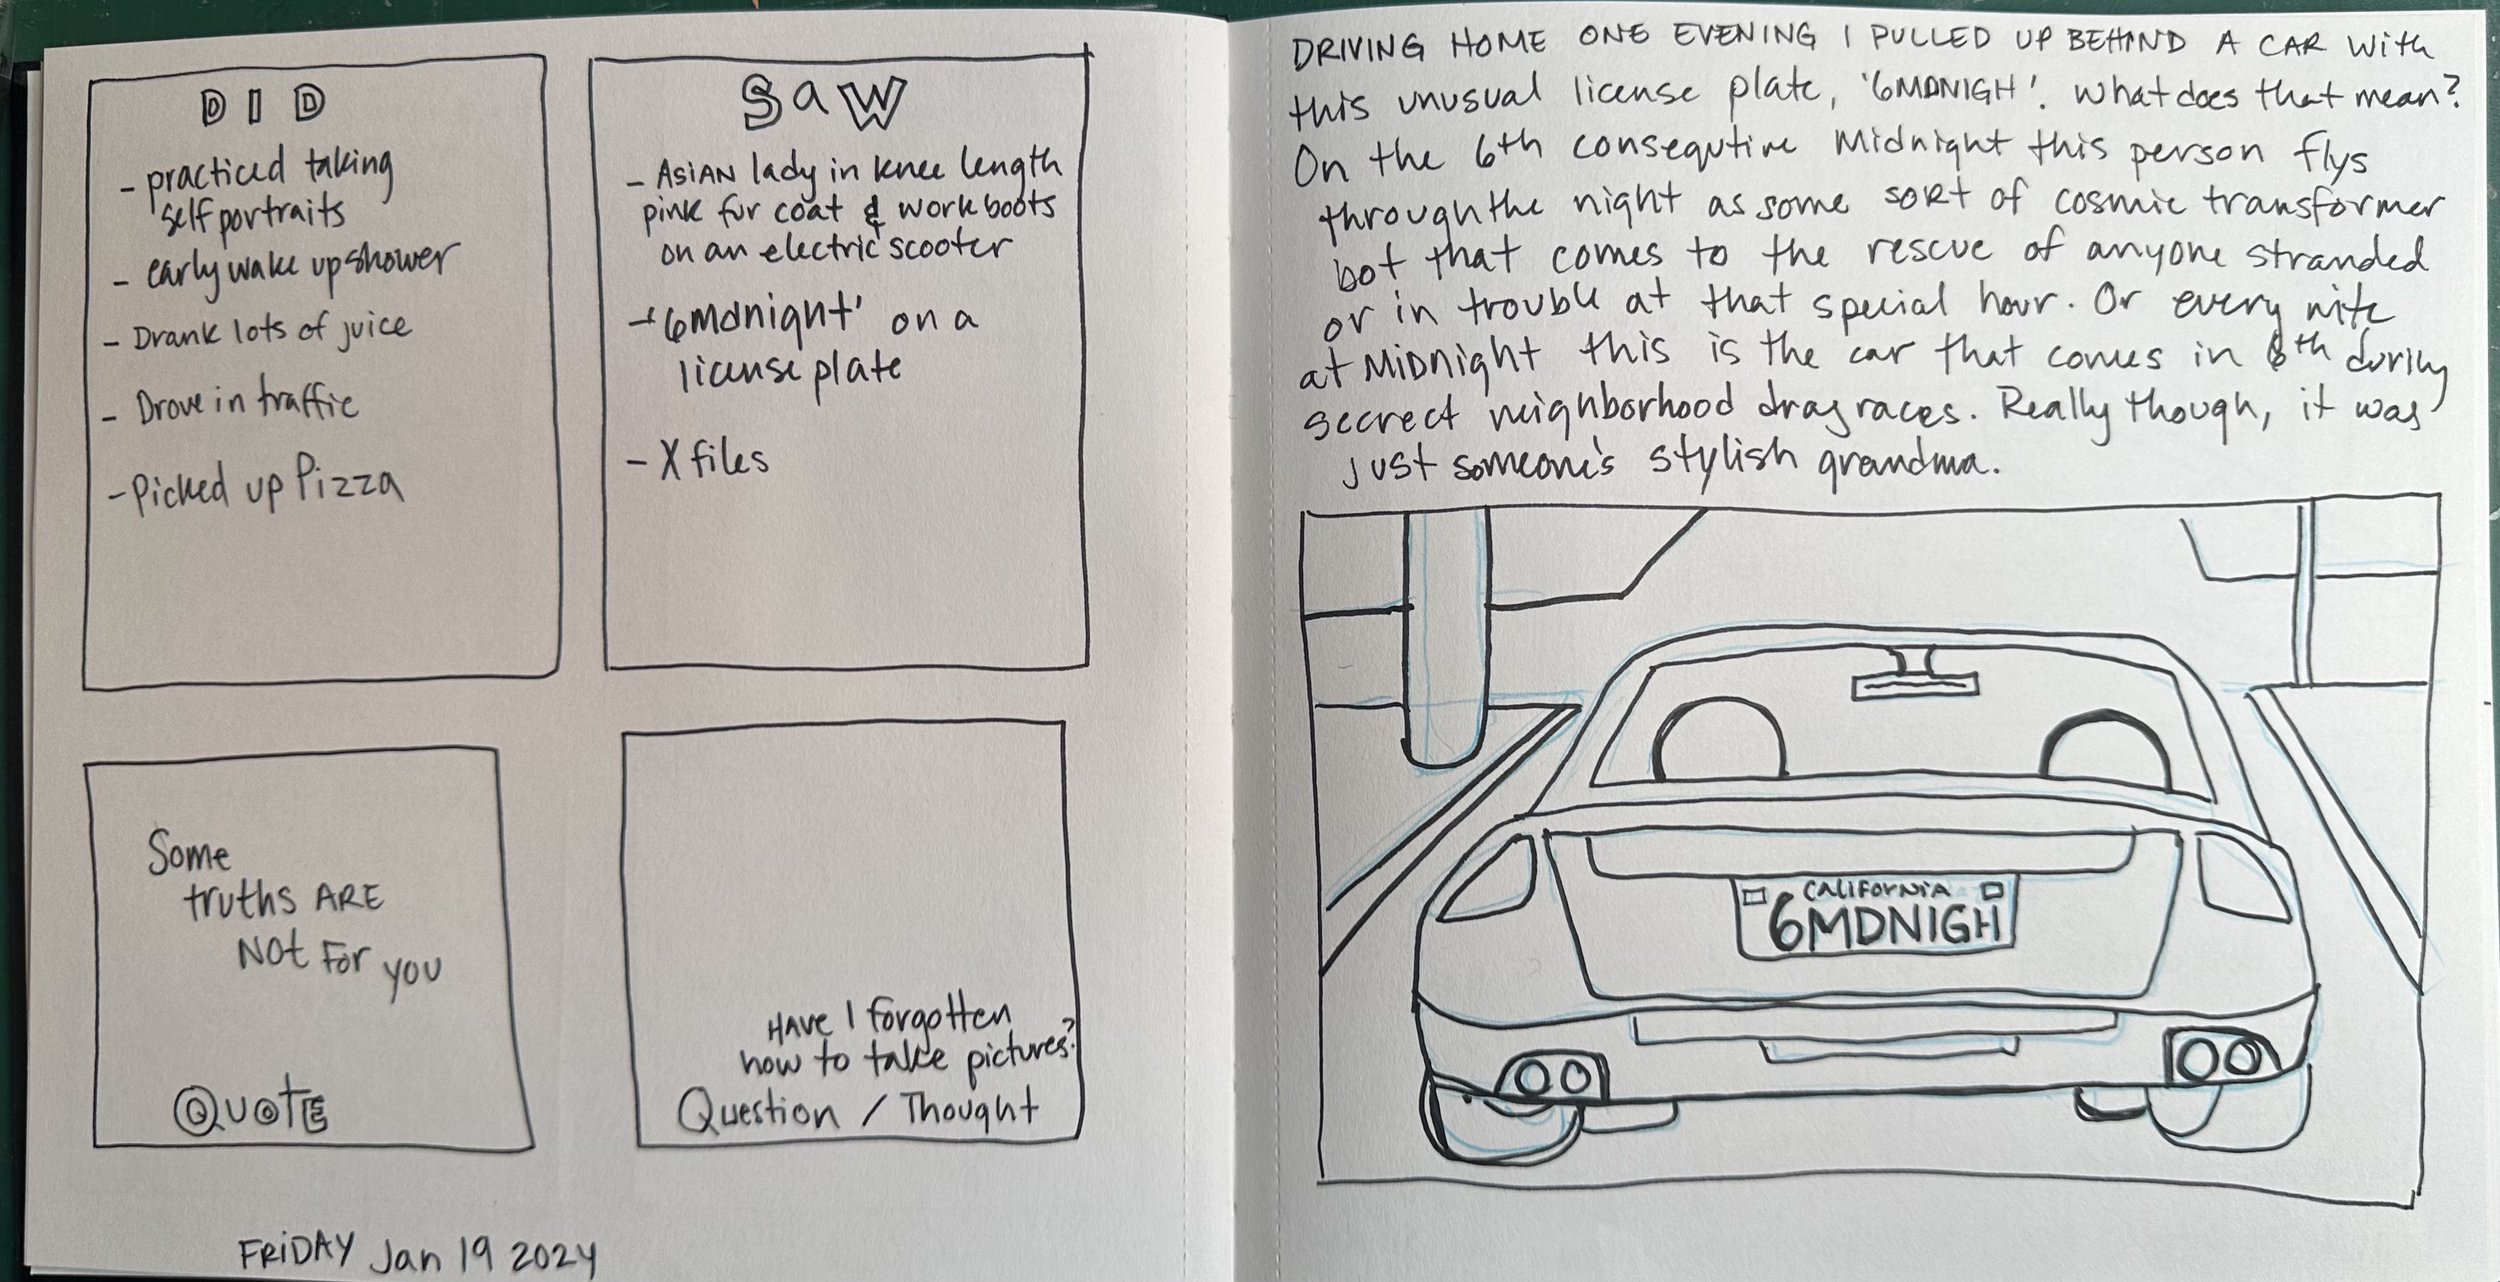 DID
- practiced taking
self portraits
- early wake up shower
- Drank lots of juice
- Drove in traffic
- Picked up Pizza
SaW
- ASIAN lady in knee length
pink fur coat & work boots
on an electric scooter
- '6mdnight' on a
license plate
- X files
Some
truths ARE
NOt For you
QUOTE
HAVE I forgotten
how to take pictures?
Question / Thought
FRiDAY Jan 19 2024
DRIVING HOME ONE EVENING I PULLED UP BEHIND A CAR With
this unusual license plate, '6MDNIGH'. What does that mean?
On the 6th consequtive Midnight this person flys
through the night as some sort of cosmic transformer
bot that comes to the rescue of anyone stranded
or in trouble at that special hour. Or every nite
at MIDNIGHT this is the car that comes in 6th during
secrect neighborhood drag races. Really though, it was
just someone's stylish grandma.
CALIFORNIA
6MDNIGH